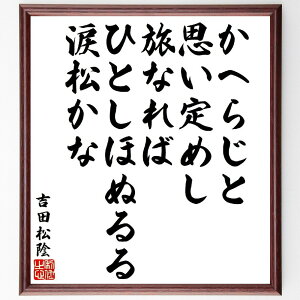 かへらじと
思い定めし
旅なれば
ひとしほぬるる
涙松かな
吉田松陰